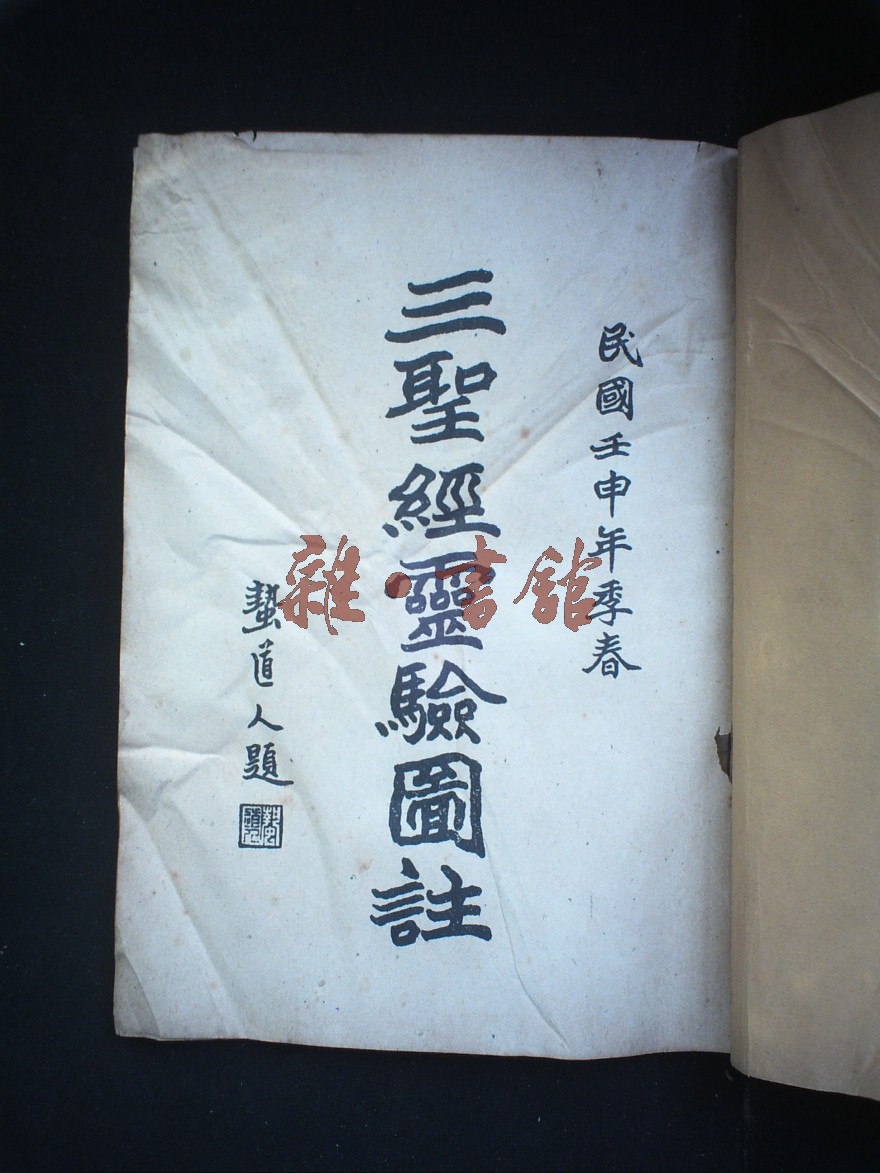 民國壬申年季春
三聖經靈驗圖註
蟄道人題
雜·書館